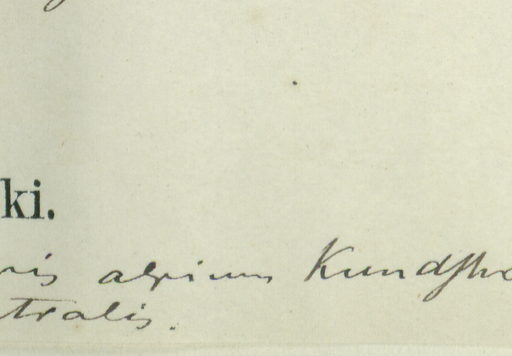 ki.
ris alpium Kundsho
tralis.